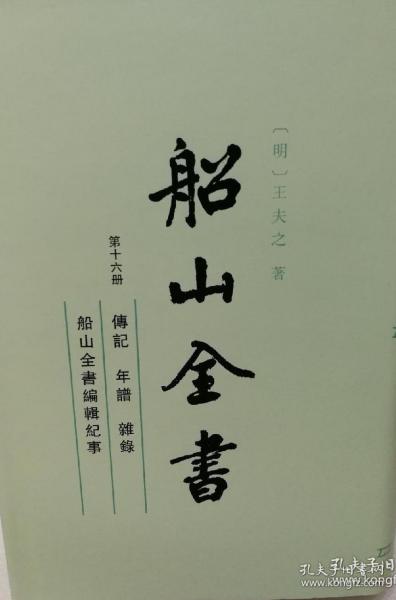 〔明〕王夫之 著
船山全書
第十六册
傳記 年譜 雜錄
船山全書編輯紀事
孔夫子旧书网